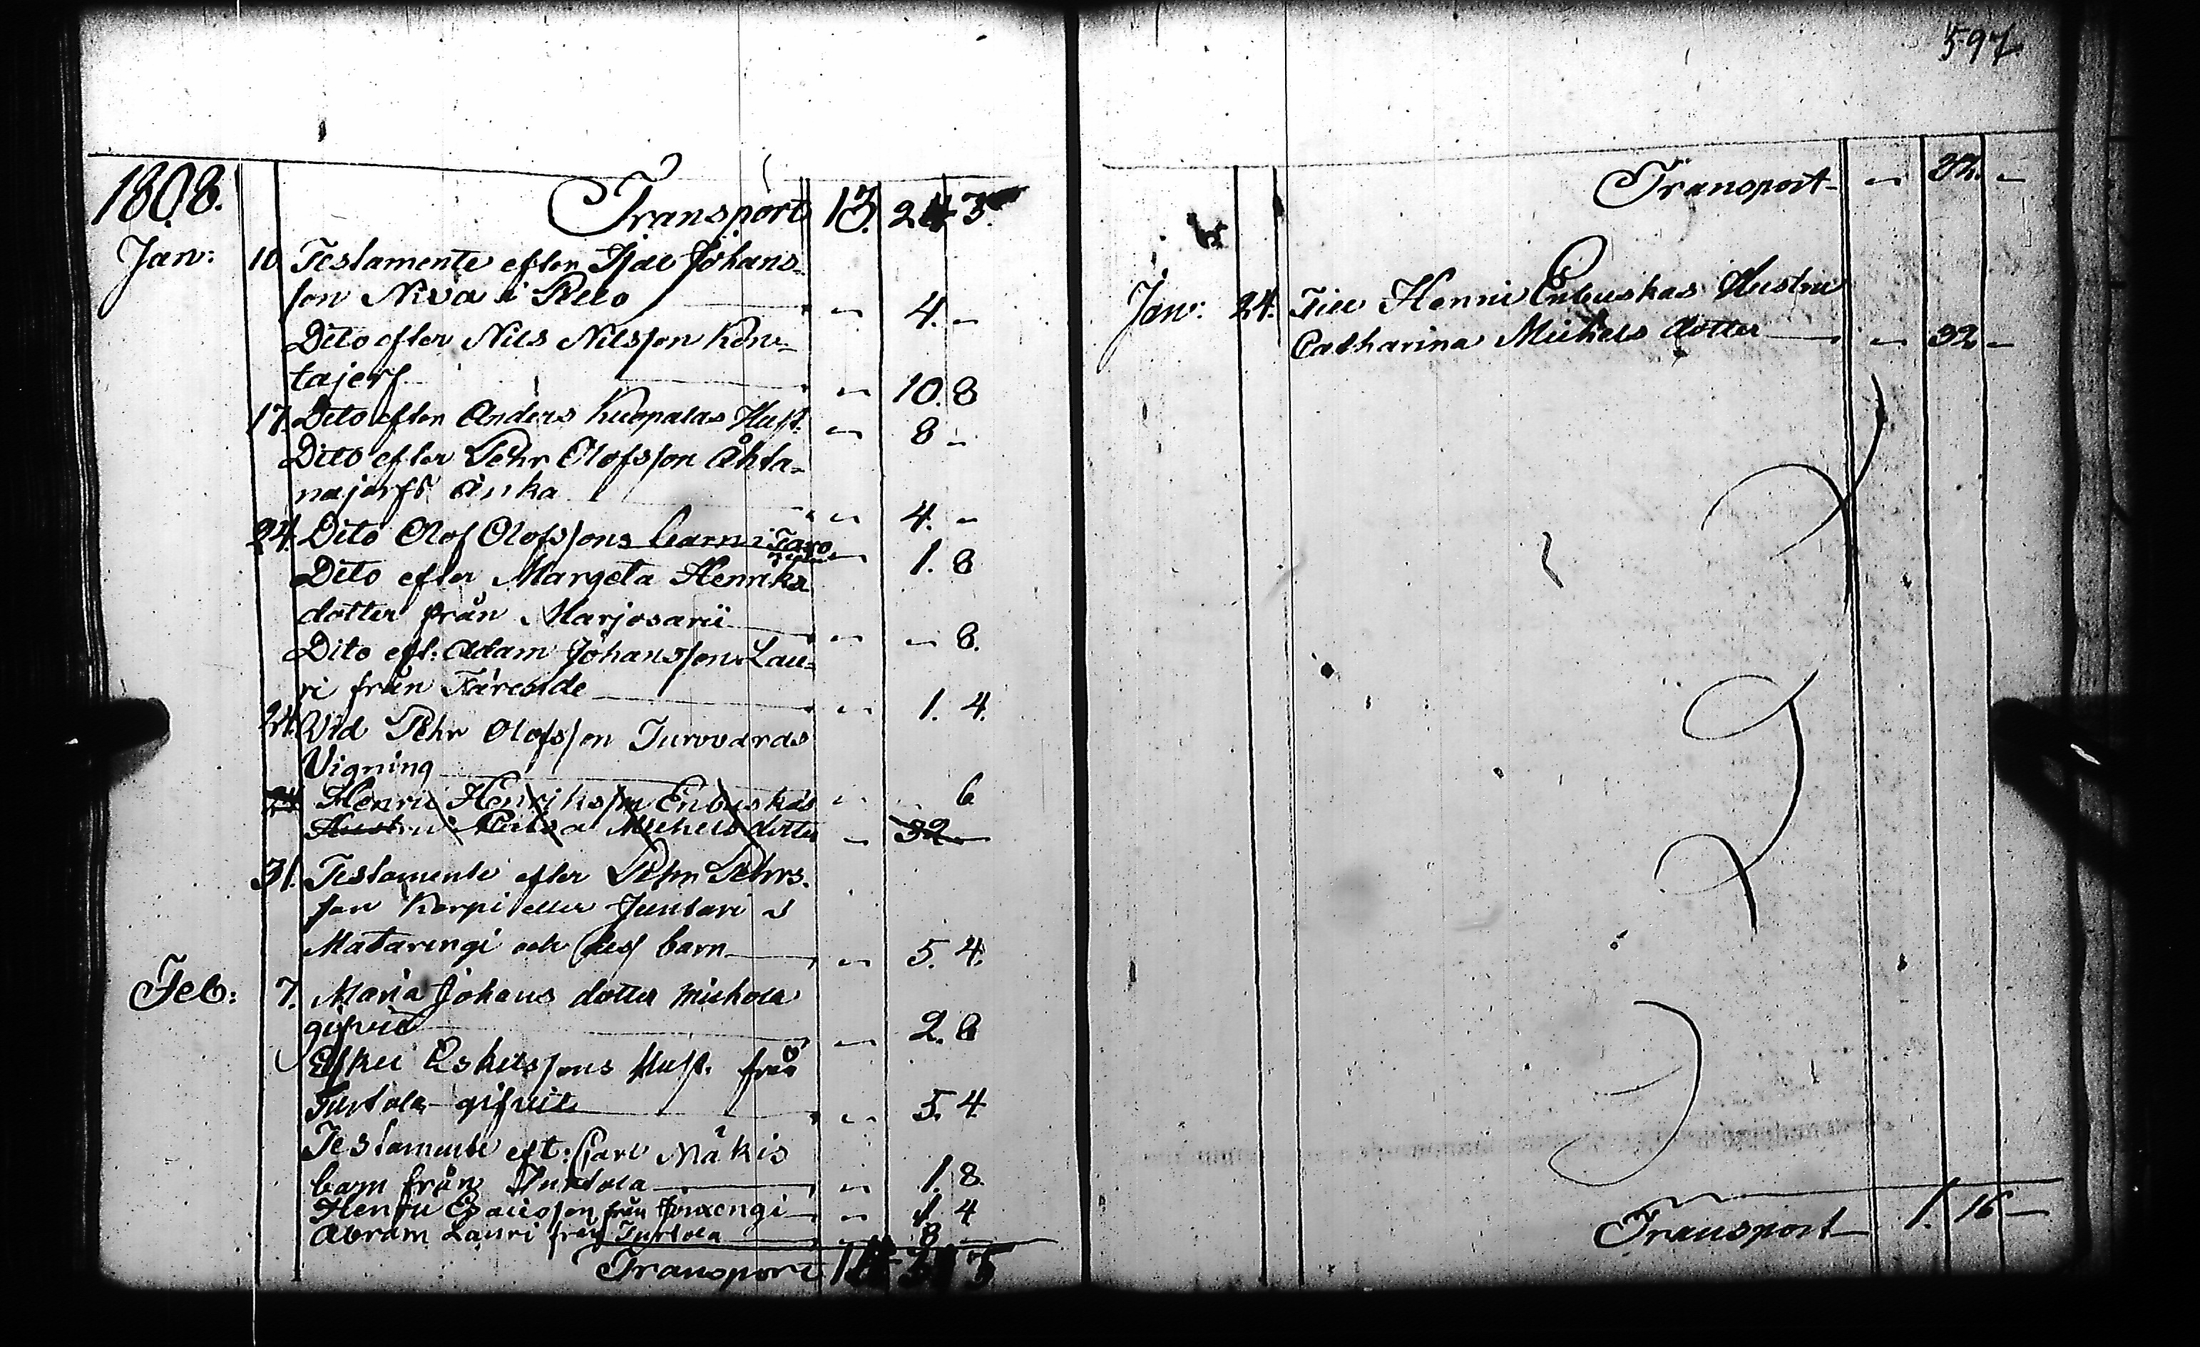 597
1808. Transport 13. 24 3.
Jan: 10 Testamente efter Isac Johans-
son Niva i Pello — 4. —
Dito efter Nils Nilsson Kon-
tajerf — 10. 8
17. Dito efter Anders Kuopalas Hust. — 8 —
Dito efter Pehr Olofsson Åhta-
najerfs änka — 4. —
24. Dito Olof Olofssons barn i — 1. 8
Dito efter Margeta Henriks
dotter från Marjosarii — — 8.
Dito eft: Adam Johansson Lau-
ri från — 1. 4.
24. Vid Pehr Olofsson Turovaras
Vigning — 6
24 Henric Henriksson Enbuskas
Hustru Michels dotter — 32 —
31. Testamente efter Pehr Pehrs-
son Korpi eller Juntari i
Matarengi och dess barn — 5. 4.
Feb: 7. Maria Johans dotter Michola
gifvit — 2. 8
Eskel Eskelssons Hust. från
Turtola gifvit — 5. 4
Testamente eft: Carl Mäkis
barn från Turtola — 1. 8.
Henric Esaiesson från Juoxengi — 1 4
Abram Lauri från Turtola 8
Transport 14 31 5
Transport — 32. —
Jan: 24. Till Henric Enbuskas Hustru
Catharina Michels dotter — 32 —
Transport 1. 16 —